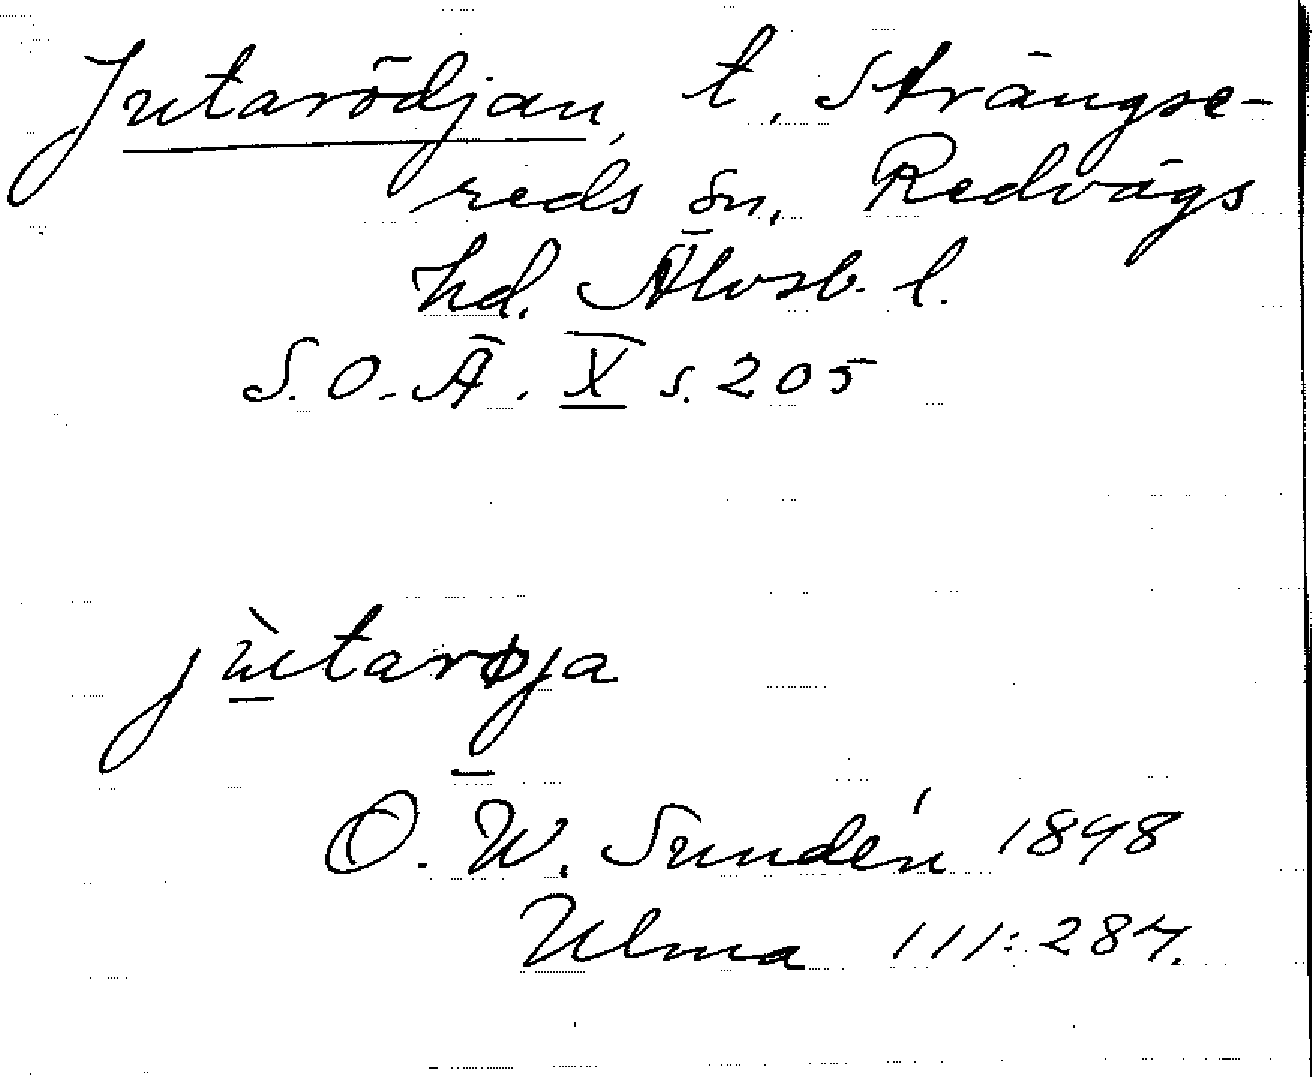 Jutarödjan, t. Strängse-
reds sn, Redvägs
hd. Älvsb. l.
S.O.Ä. X s. 205
jùtarøja
O. W. Sundén 1898
Ulma 111:284.